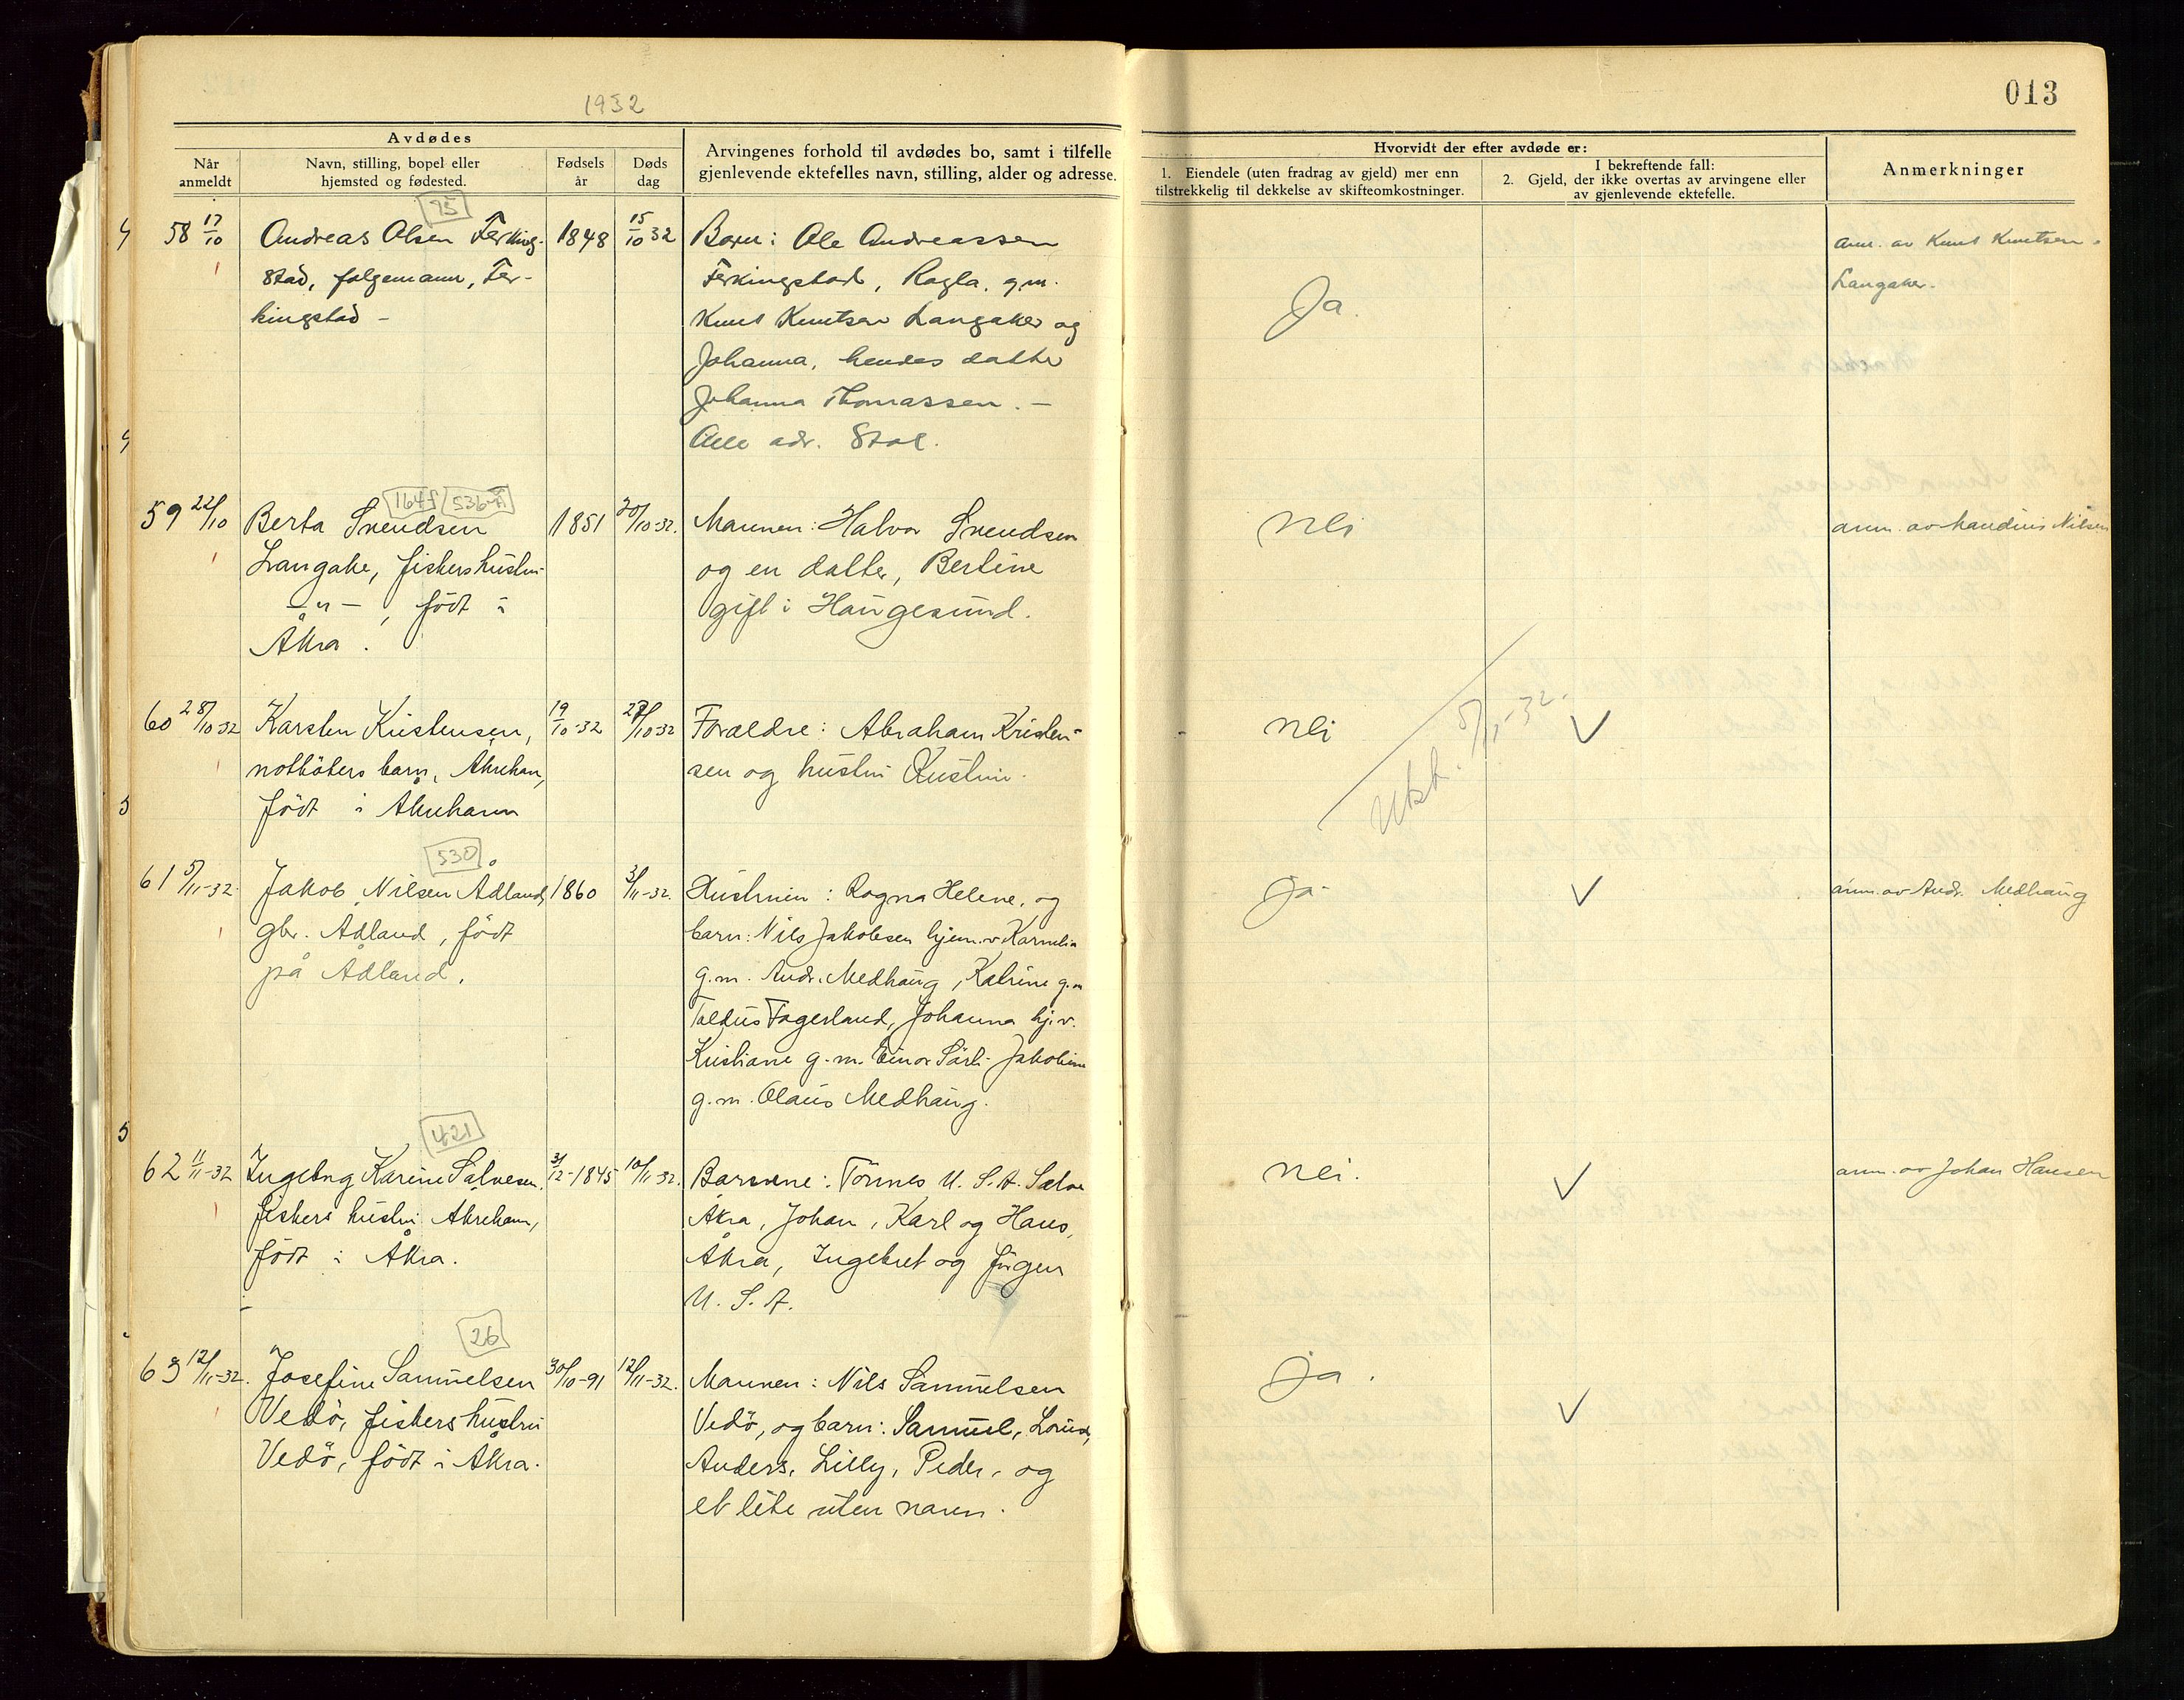 1932
013
Avdødes
Når
anmeldt
Navn, stilling, bopel eller
hjemsted og fødested.
Fødsels
år
Døds
dag
Arvingenes forhold til avdødes bo, samt i tilfelle
gjenlevende ektefelles navn, stilling, alder og adresse.
Hvorvidt der efter avdøde er:
1. Eiendele (uten fradrag av gjeld) mer enn
tilstrekkelig til dekkelse av skifteomkostninger.
I bekreftende fall:
2. Gjeld, der ikke overtas av arvingene eller
av gjenlevende ektefelle.
Anmerkninger
95
58 17/10 Andreas Olsen Ferking- 1848 15/10 32 Barn: Ole Andreassen anm. av Knut Knutsen
stad, følgemann, Fer- Ferkingstad, Ragla, g.m. Langaker.
kingstad - Knut Knutsen Langaker og Ja.
Johanna, hendes datter
Johanna Thomassen. -
Alle adr. Stol.
164f 536
59 22/10 Berta Svendsen 1851 20/10-32. Mannen: Halvor Svendsen nei anm. av Nilsen
Langåke, fiskers hustru og en datter, Bertine
-"-, født i gift i Haugesund.
Åkra.
60 28/10 32 Karsten Kristensen, 19/10-32 27/10 32 Foreldre: Abraham Kristen- nei Utskr. 5/11-32. ✓
notbøters barn, Åkrehan, sen og hustru
født i Åkrehamn
530
61 5/11-32. Jakob Nilsen Ådland, 1860 3/11-32. Hustruen: Ragna Helene, og ja ✓ anm. av Andr. Medhaug
gbr. Ådland, født barn: Nils Jakobsen hjem.v Kornelia
på Ådland. g.m. Andr. Medhaug, Katrine g.m
Fagerland, Johanna hj.v.
Kristiane g.m. Einar Jakobine
g.m. Olaus Medhaug.
421
62 11/11-32 Ingebrg Karine Salvesen 31/12-1845 10/11-32. Barnene: Tönnes U.S.A. Salve nei. ✓ anm. av Johan Hansen
fiskers hustru Åkreham, Åkra, Johan, Karl og Hans,
født i Åkra. Åkra, Ingebret og Jörgen
U.S.A.
26
63 12/11-32. Josefine Samuelsen 30/10-91 12/11-32. Mannen: Nils Samuelsen ja. ✓
Vedö, fiskers hustru Vedö, og barn: Samuel,
Vedö, födt i Åkra. Anders, Lilly, Peder, og
et lite uten navn.